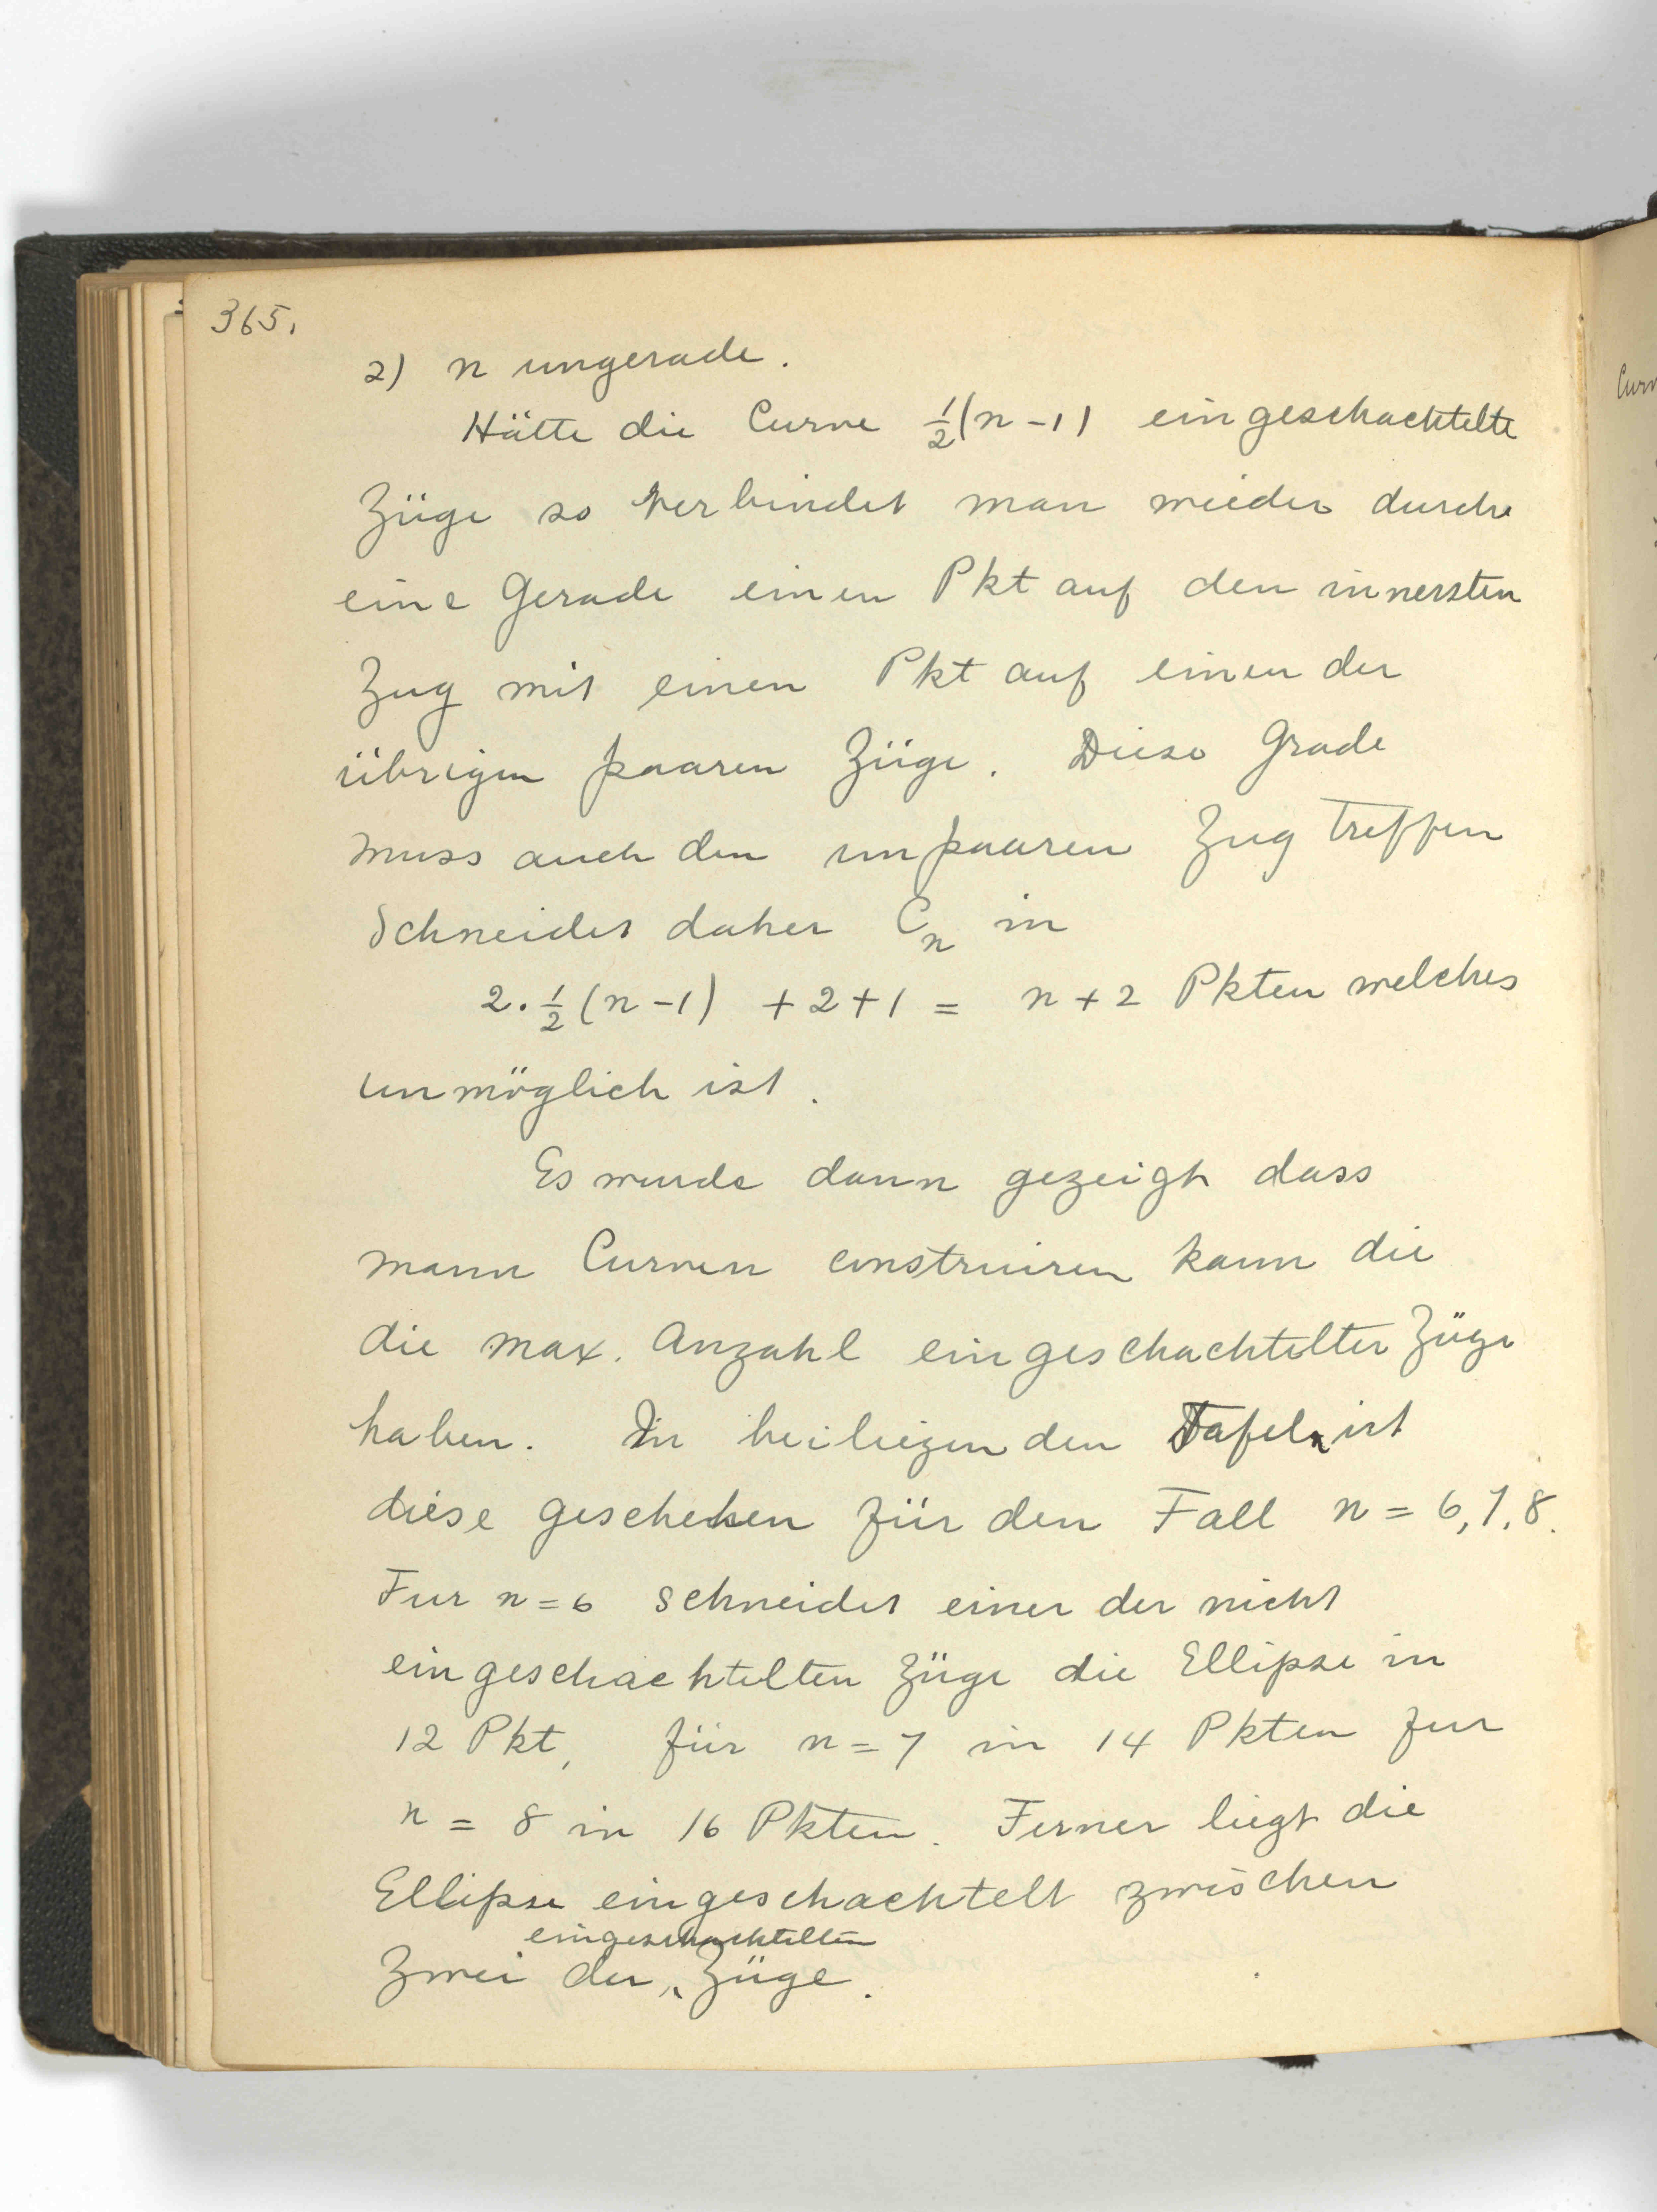 365.
2) n ungerade.
Hätte die Curve ½(n-1) eingeschachtelte
Züge so verbindet man wieder durch
eine Gerade einen Pkt auf den innersten
Zug mit einen Pkt auf einen der
übrigen paaren Züge. Diese Grade
muss auch den unpaaren Zug treffen
Schneidet daher Cₙ in
2·½(n-1) +2+1 = n+2 Pkten welches
unmöglich ist.
Es wurde dann gezeigt dass
mann Curven construiren kann die
die max. Anzahl eingeschachtelter Züge
haben. In beiliegenden Tafeln ist
diese geschehen für den Fall n = 6,7,8.
Fur n=6 schneidet einer der nicht
eingeschachtelten Züge die Ellipse in
12 Pkt, für n=7 in 14 Pkten fur
n = 8 in 16 Pkten. Ferner liegt die
Ellipse eingeschachtelt zwischen
eingeschachtelten
Zwei der Züge.
Curv